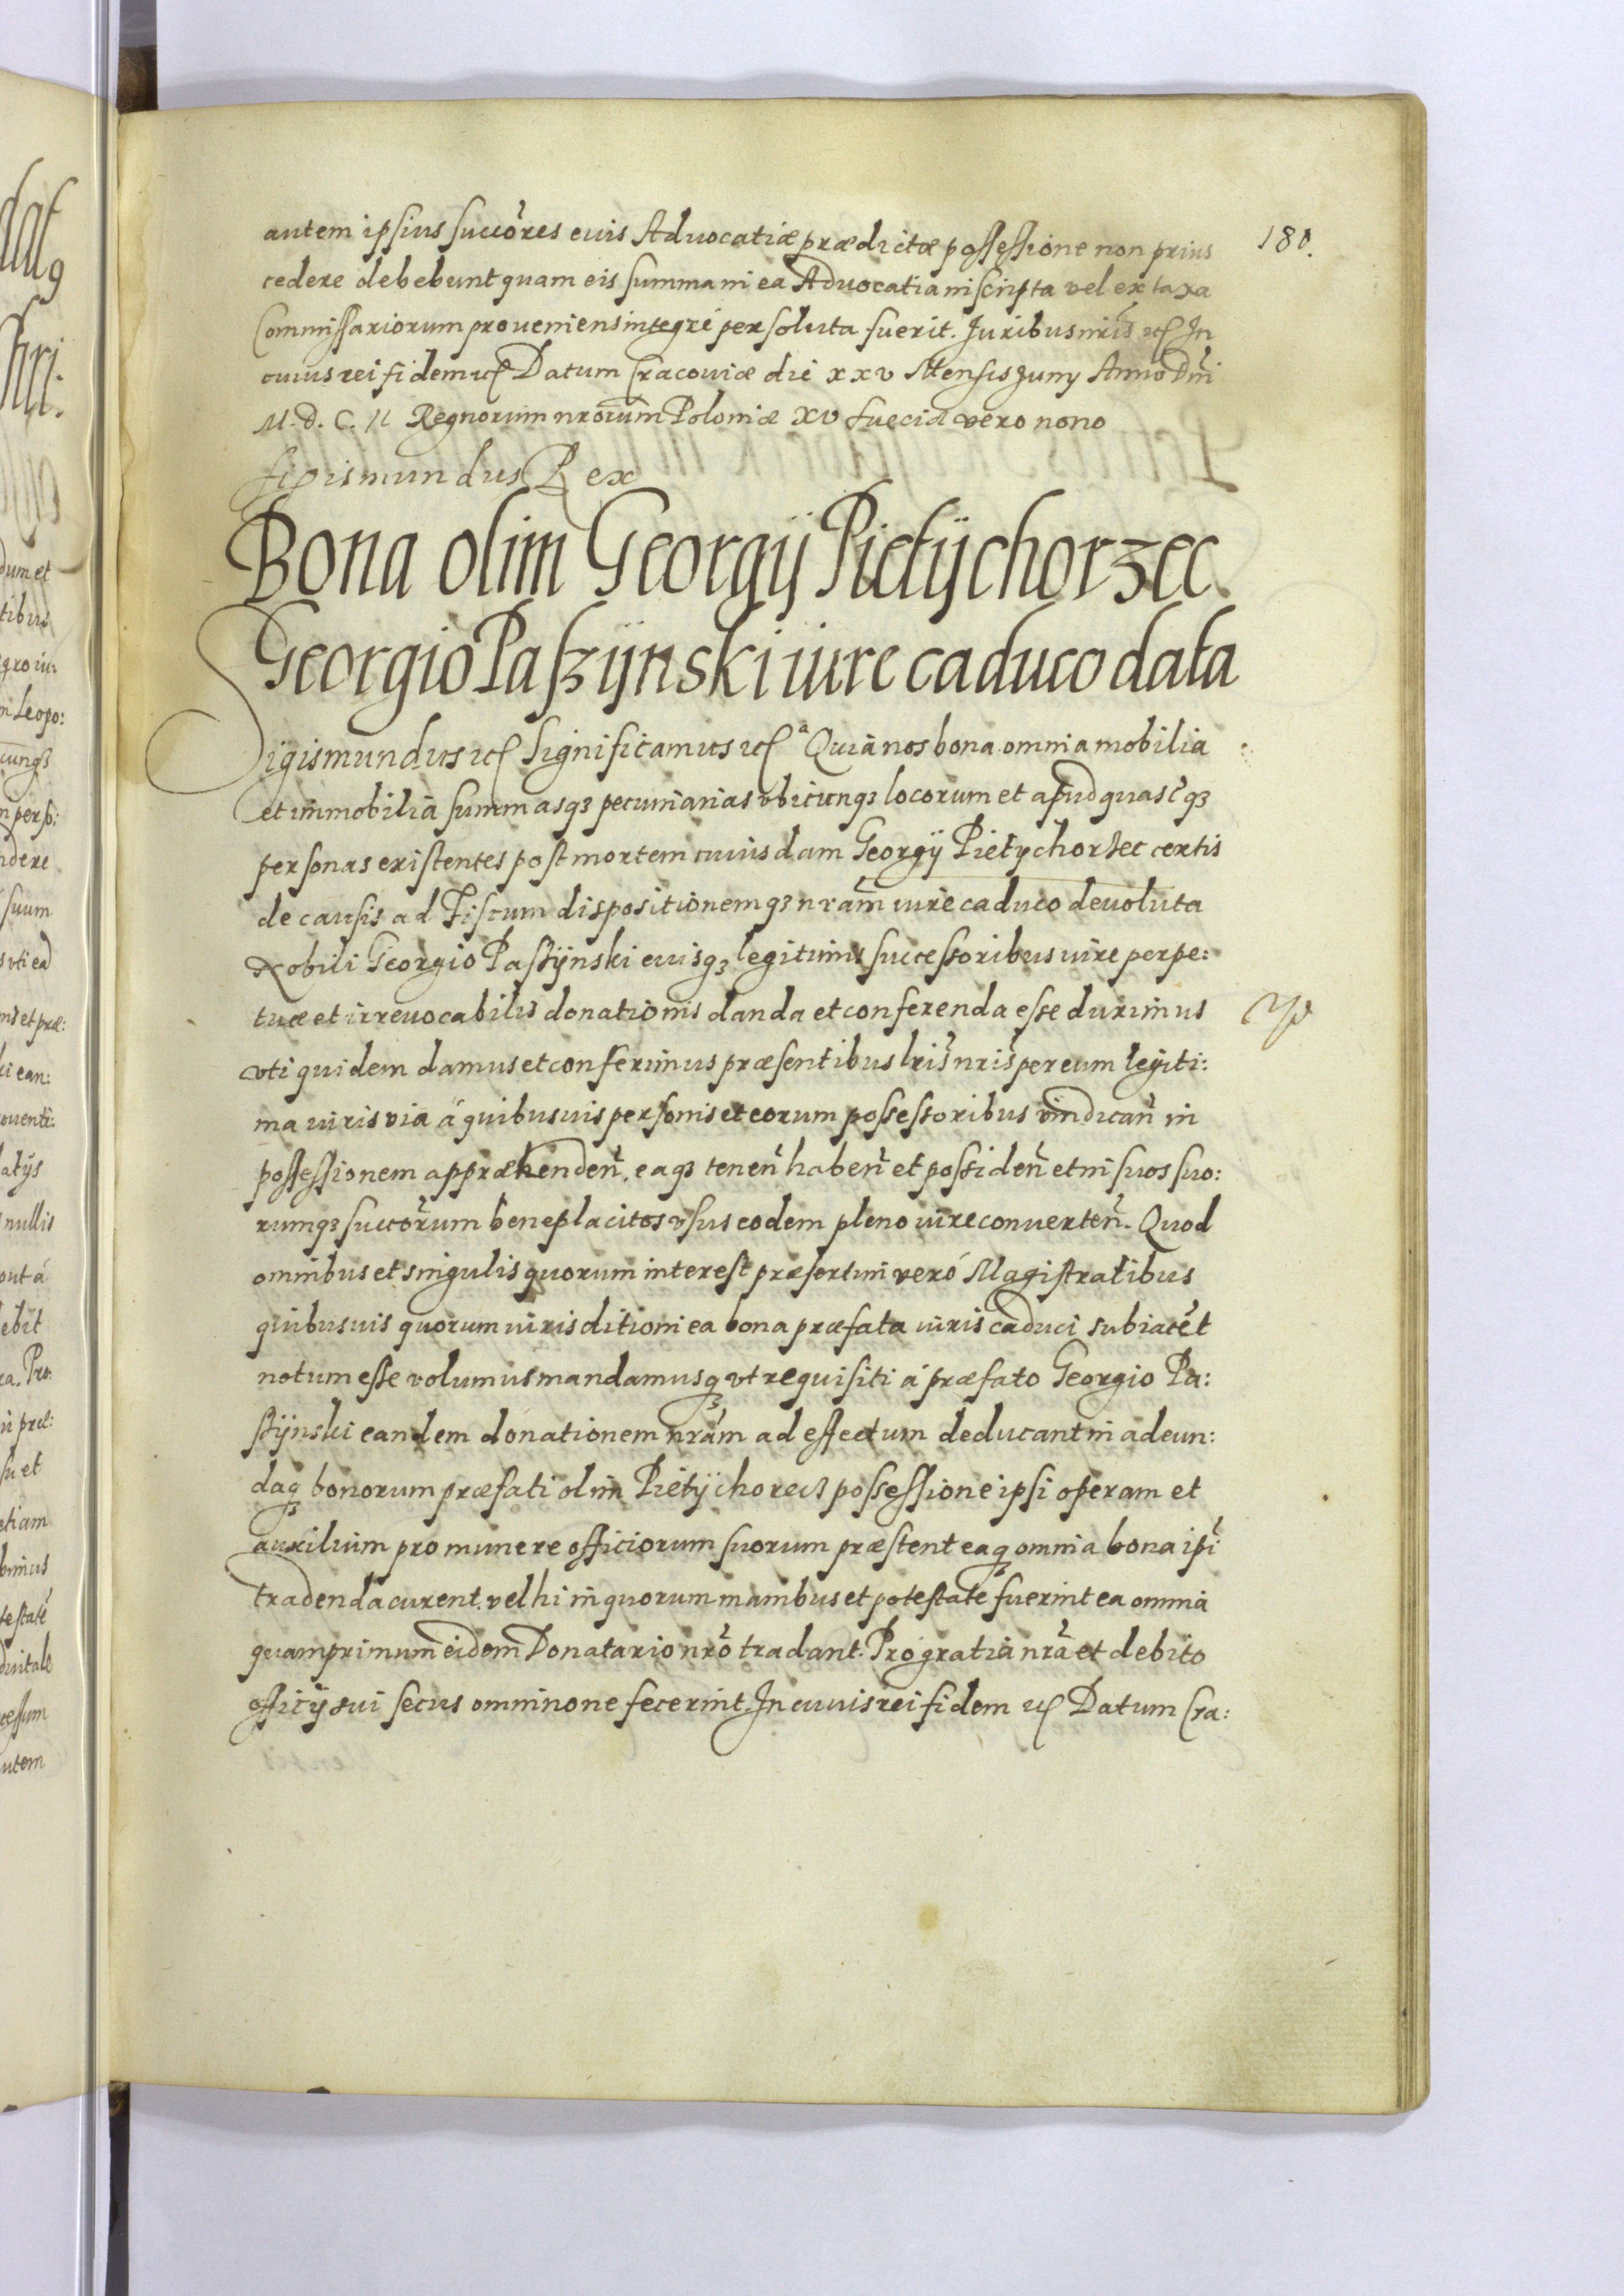 180.
autem ipsius succo͠res eius Aduocatiæ prædictæ possessione non prius
cedere debebunt quam eis summa in ea Aduocatia inscripta vel ex taxa
Commissariorum proueniens integré persoluta fuerit. Juribus nr͠is etc. In
cuius rei fidem etc. Datum Cracouiæ die xxv Mensis Juny Anno Dn͠i
M. D. C. II Regnorum nr͠orum Poloniæ XV Sueciæ vero nono
Sigismundus Rex
Bona olim Georgij Pietÿchorzec
Georgio Paszÿnski iure caduco data
Sigismundus etc. Significamus etc. Quia nos bona omnia mobilia
et immobilia summasqꝫ pecuniarias vbicunqꝫ locorum et apud quasc͠qꝫ
personas existentes post mortem cuiusdam Georgÿ Pietychorzec certis
de causis ad Fiscum dispositionemqꝫ nr͠am iure caduco deuoluta
Nobili Georgio Paszÿnski eiusqꝫ legitimis successoribus iure perpe:
tuæ et irreuocabilis donationis danda et conferenda esse duximus
vti quidem damus et conferimus præsentibus lr͠is nr͠is per eum legiti:
ma iuris via á quibusuis personis et eorum possessoribus vindican͠ in
possessionem appræhenden͠, eaqꝫ tenen͠ haben͠ et possiden͠ et in suos suo:
rumqꝫ succo͠rum beneplacitos vsus eodem pleno iure conuerten͠. Quod
omnibus et singulis quorum interest præsertim veró Magistratibus
quibusuis quorum iurisditioni ea bona præfata iuris caduci subiace͠t
notum esse volumus mandamusqꝫ vt requisiti á præfato Georgio Pa:
szÿnski eandem donationem nr͠am ad effectum deducant in adeun:
daqꝫ bonorum præfati olim Pietÿchorecz possessione ipsi operam et
auxilium pro munere officiorum suorum præstent eaqꝫ omnia bona ip͠i
tradenda curent, vel hi in quorum manibus et potestate fuerint ea omnia
quamprimum eidem Donatario nr͠o tradant. Pro gratia nr͠a et debito
officÿ sui secus omnino ne fecerint. In cuius rei fidem etc. Datum Cra: